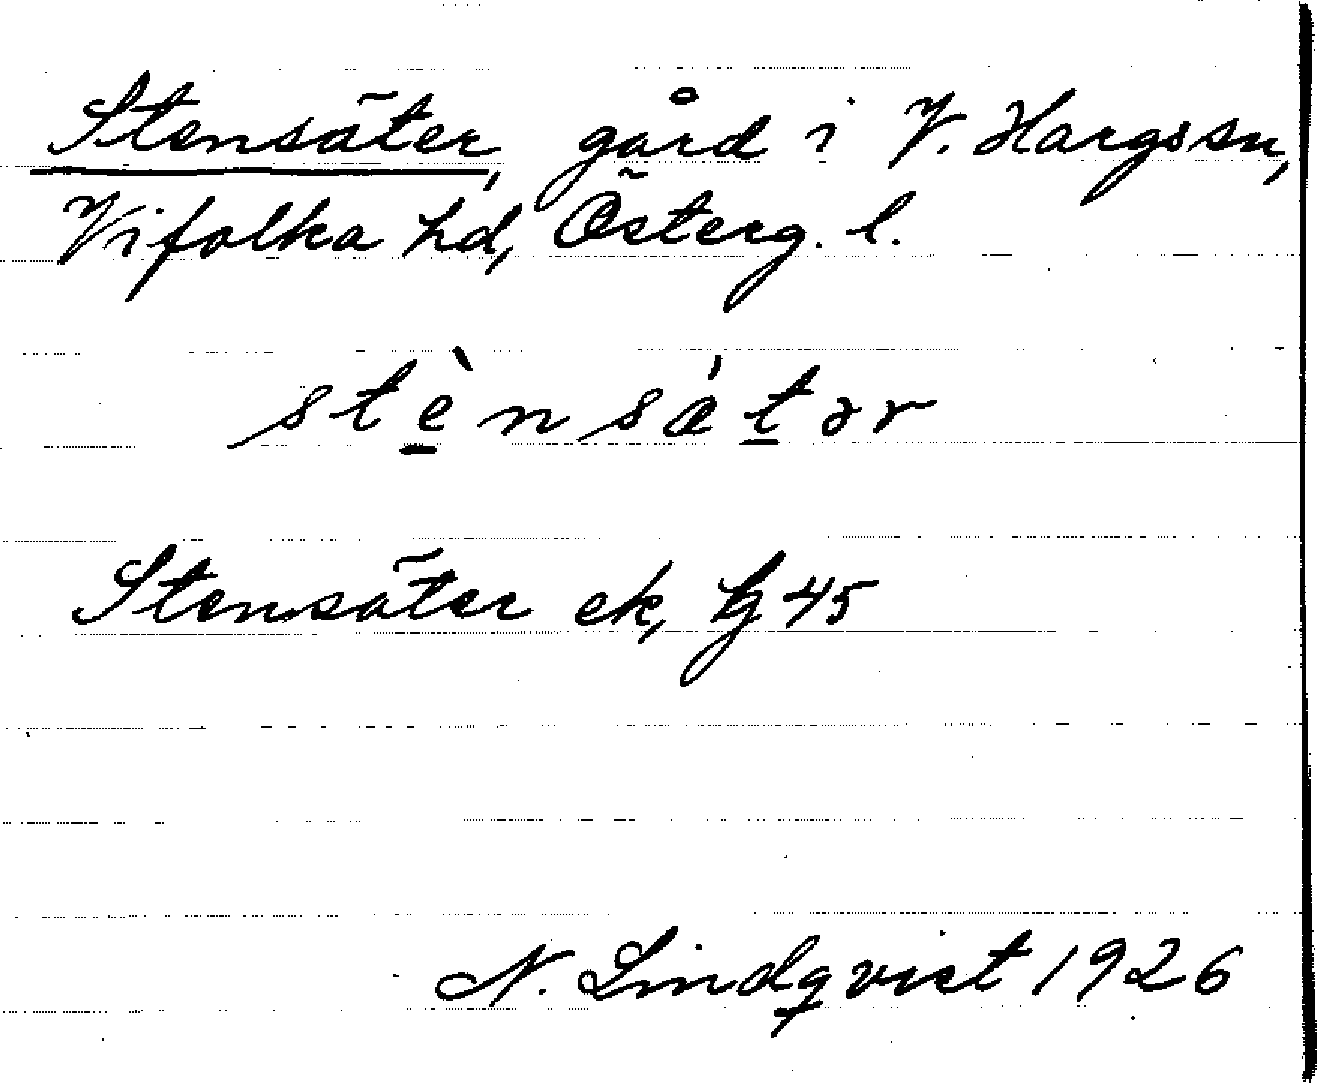 Stensäter, gård i V. Hargssn,
Vifolka hd, Österg. l.
stè̠nsǻt̠ər
Stensäter ek, hj 45
N. Lindqvist 1926